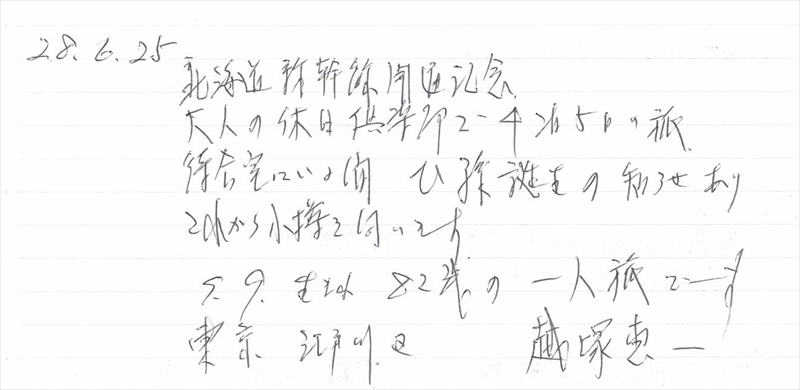 28.6.25
北海道新幹線開通記念
大人の休日倶楽部で 4泊5日の旅
待合室にいる間 ひ孫誕生の知らせあり
これから小樽を向います
S.9.生まれ 82歳の一人旅です
東京 江戸川区 越塚恵一